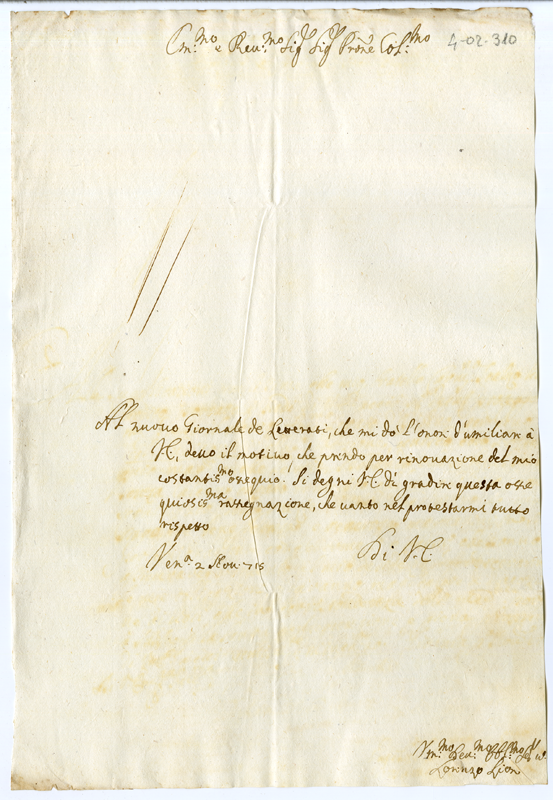 Em.mo e Reu.mo Sig.r Sig.r Prone Col.mo
4-02-310
Al nuouo Giornale de Letterati, che mi dò l'onor d'umiliar à
V.E. deuo il motiuo, che prendo per rinouazione del mio
costantis.mo ossequio. Si degni V.E. di gradire questa osse
quiosis.ma rassegnazione, che uanto nel protestarmi tutto
rispetto
Di V.E.
Ven.a 2 Nou. 715
Vm.mo Deu.mo Obl.mo
Lorenzo Lion